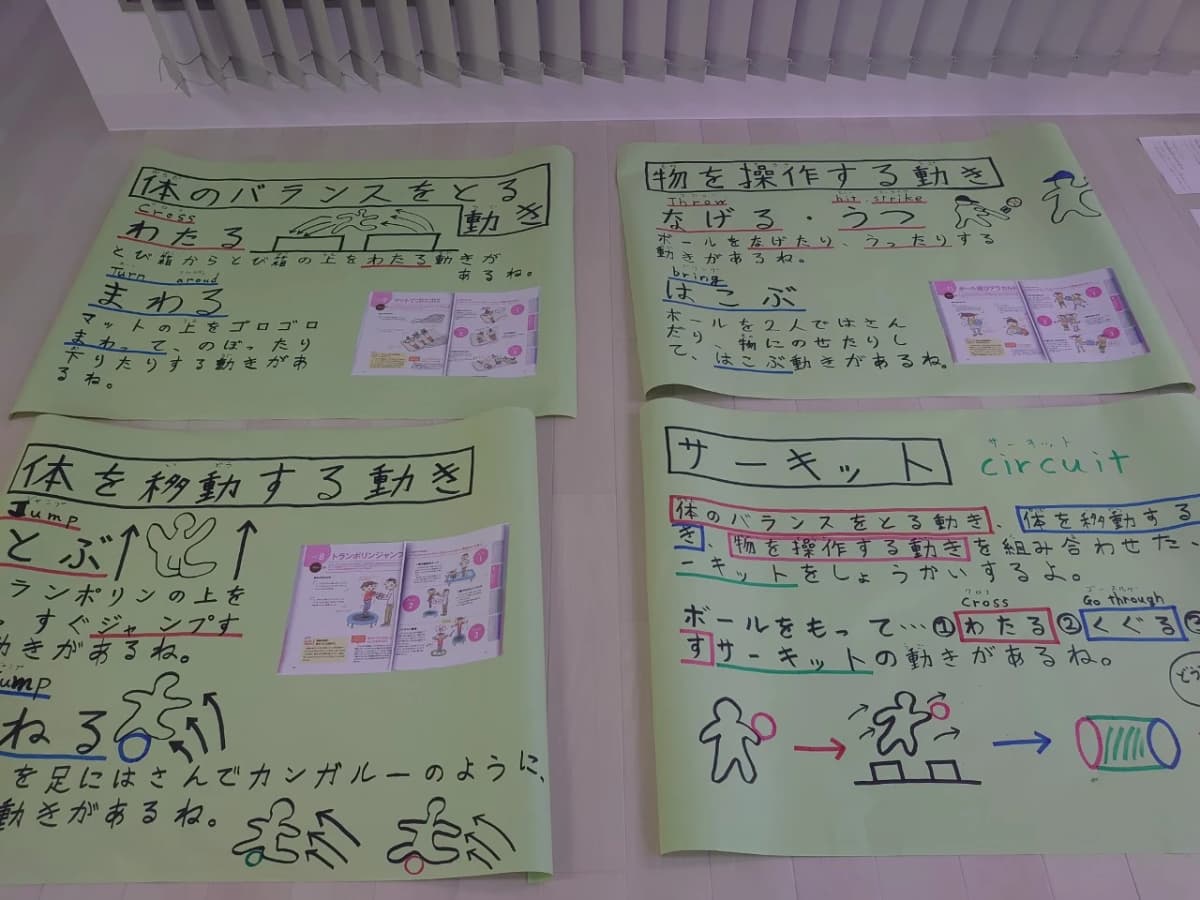 体のバランスをとる
動き
Cross
わたる
とび箱からとび箱の上をわたる動きが
あるね。
Turn aroud
まわる
マットの上をゴロゴロ
まわって、のぼったり
下りたりする動きがあ
るね。
物を操作する動き
Throw
hit strike
なげる・うつ
ボールをなげたり、うったりする
動きがあるね。
bring
はこぶ
ボールを2人ではさん
だり、物にのせたりし
て、はこぶ動きがあるね。
体を移動する動き
Jump
とぶ
ランポリンの上を
すぐジャンプす
動きがあるね。
トランポリンジャンプ
ump
ねる
を足にはさんでカンガルーのように、
動きがあるね。
サーキット
サーキット
circuit
体のバランスをとる動き、体を移動する
き、物を操作する動きを組み合わせた、
ーキットをしょうかいするよ。
クロス
Cross
Go through
ボールをもって…①わたる②くぐる③
すサーキットの動きがあるね。
どう